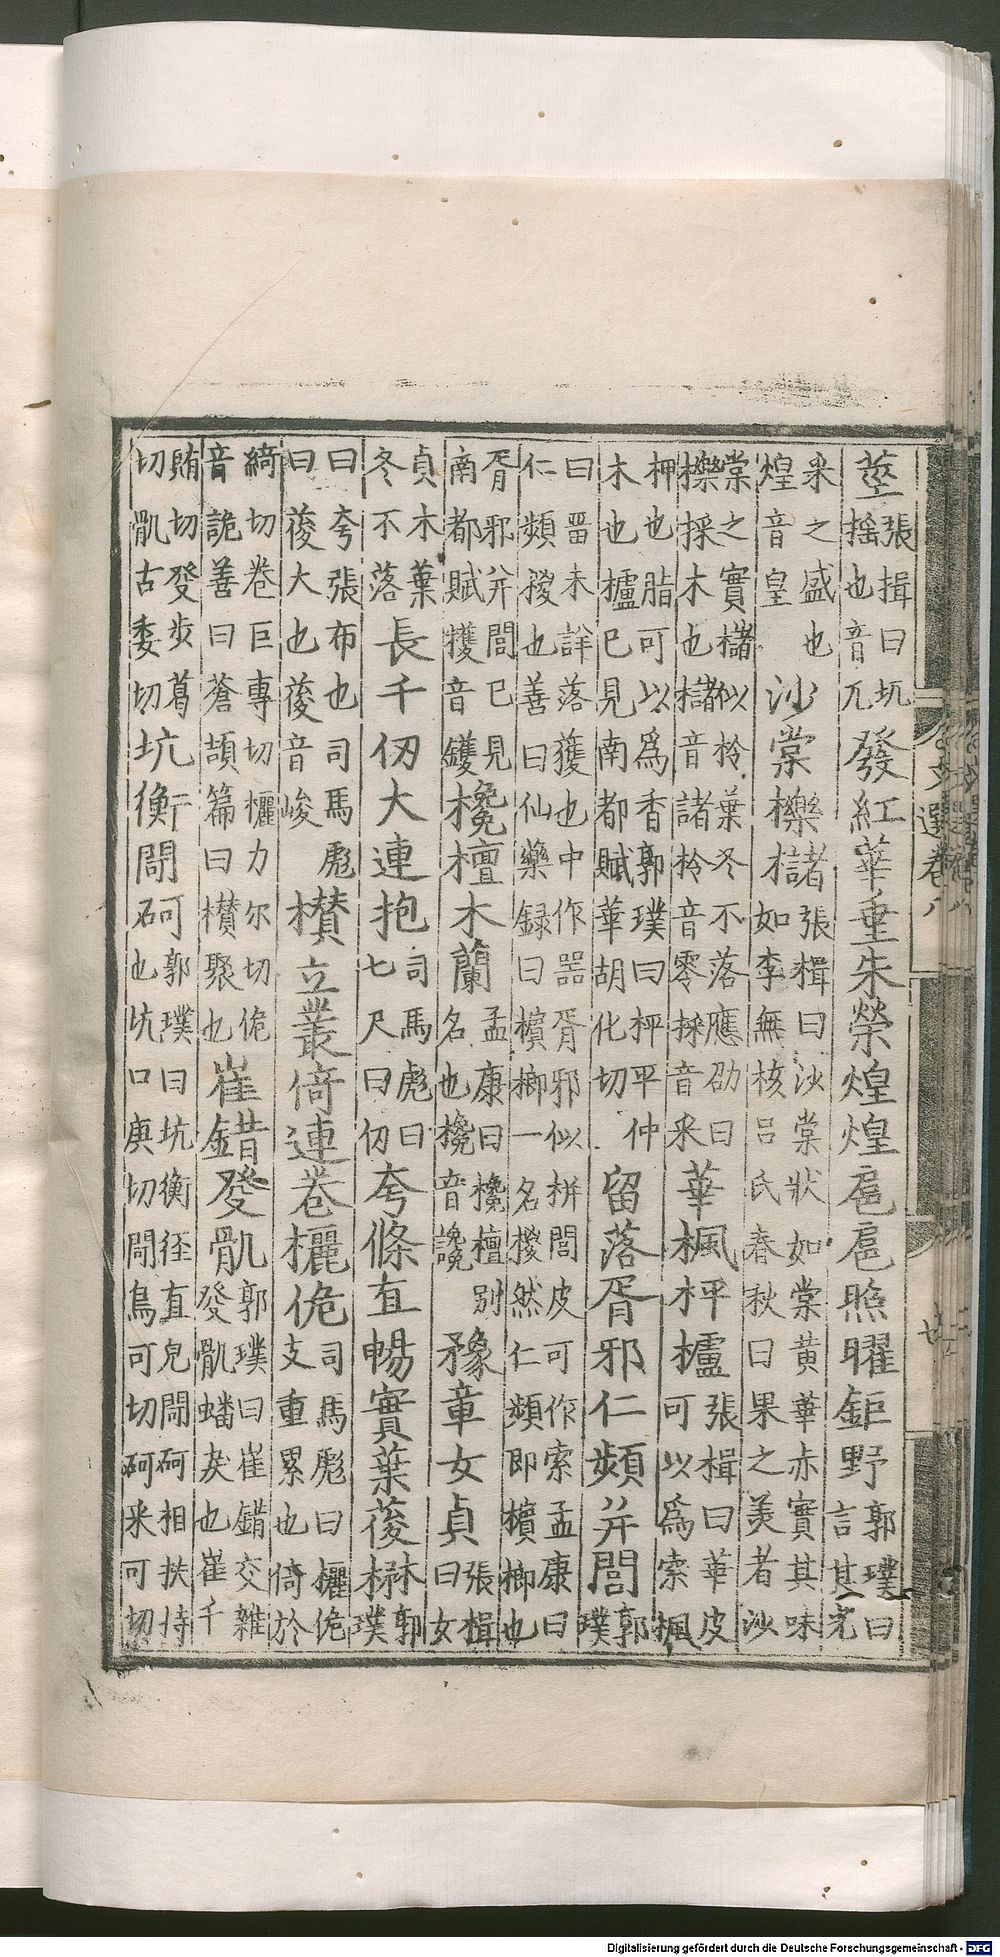 莖張揖曰扤搖也音兀發紅華垂朱榮煌煌扈扈照曜鉅野郭璞曰言其光
采之盛也煌音皇沙棠櫟櫧張揖曰沙棠狀如棠黃華赤實其味如李無核呂氏春秋曰果之美者沙
棠之實櫧似柃葉冬不落應劭曰櫟採木也櫧音諸柃音零採音采華楓枰櫨張揖曰華皮可以爲索楓
柙也脂可以爲香郭璞曰枰平仲木也櫨已見南都賦華胡化切留落胥邪仁頻并閭郭璞
曰畱未詳落獲也中作器胥邪似栟閭皮可作索孟康曰仁頻椶也善曰仙藥録曰檳榔一名椶然仁頻即檳榔也
胥邪并閭已見南都賦獲音鑊欃檀木蘭孟康曰欃檀別名也欃音讒豫章女貞張揖曰女
貞木葉冬不落長千仞大連抱司馬彪曰七尺曰仞夸條直暢實葉葰楙郭璞
曰夸張布也司馬彪曰葰大也葰音峻欑立叢倚連卷欐佹司馬彪曰欐佹支重累也倚於
綺切卷巨專切欐力尔切佹音詭善曰蒼頡篇曰欑聚也崔錯癹骫郭璞曰崔錯交雜癹骫蟠戾也崔千
賄切癹步葛切骫古委切坑衡閜砢郭璞曰坑衡徑直皃閜砢相扶持也坑口庚切閜烏可切砢来可切
文選卷八
Digitalisierung gefördert durch die Deutsche Forschungsgemeinschaft - DFG